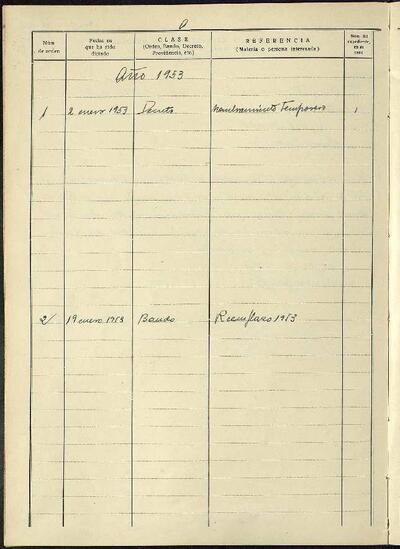 Núm.
de orden
Fecha en
que ha sido
dictado
CLASE
(Orden, Bando, Decreto,
Providencia, etc.)
REFERENCIA
(Materia o persona interesada)
Núm. del
expediente,
Año 1953
1 2 enero 1953 Decreto Nombramiento Temporero 1
2/ 19 enero 1953 Bando Reemplazo 1953